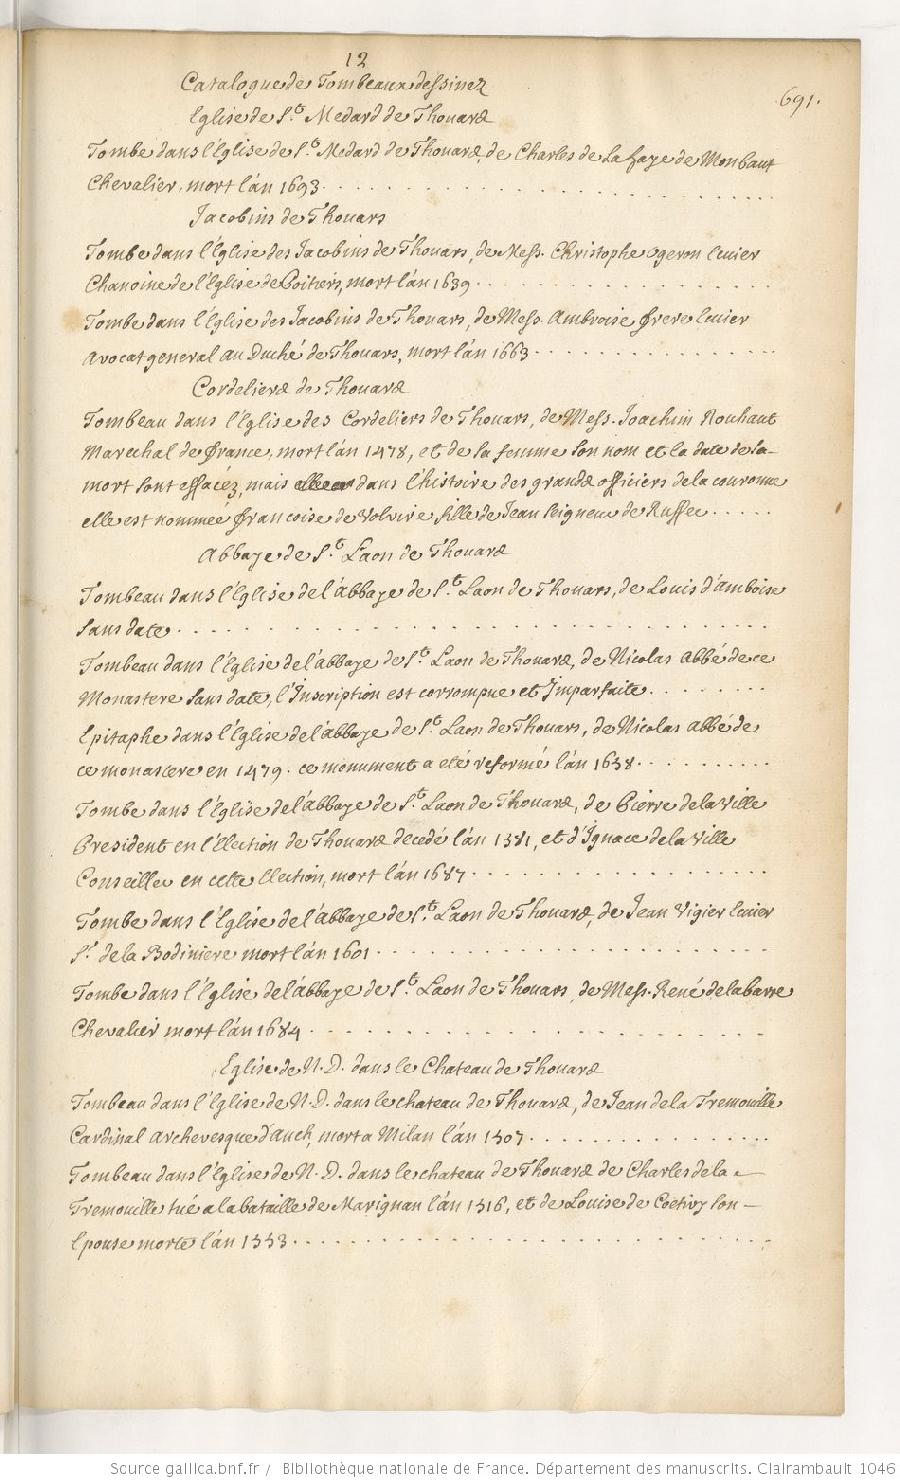 12
Catalogue de Tombeaux dessinez
691.
Eglise de St. Medard de Thouars
Tombe dans l'Eglise de St. Medard de Thouars, de Charles de La faye de Monbaut
Chevalier, mort l'an 1693.
Jacobins de Thouars
Tombe dans l'Eglise des Jacobins de Thouars, de Mess. Christophe Ogeron Ecuier
Chanoine de l'Eglise de Poitiers, mort l'an 1639.
Tombe dans l'Eglise des Jacobins de Thouars, de Mess. Ambroise frere Ecuier
Avocat general au Duché de Thouars, mort l'an 1663.
Cordeliers de Thouars
Tombeau dans l'Eglise des Cordeliers de Thouars, de Mess. Joachim Rouhaut
Marechal de france, mort l'an 1478, et de sa femme son nom et la date de sa
mort sont effacéz, mais dans l'histoire des grands officiers de la couronne
elle est nommeé françoise de Volvire fille de Jean seigneur de Ruffec.
Abbaye de St. Laon de Thouars
Tombeau dans l'Eglise de l'abbaye de St. Laon de Thouars, de Louis d'amboise
sans date.
Tombeau dans l'Eglise de l'abbaye de St. Laon de Thouars, de Nicolas abbé de ce
Monastere sans date, l'Inscription est corrompue et Imparfaite.
Epitaphe dans l'Eglise de l'abbaye de St. Laon de Thouars, de Nicolas abbé de
ce monastere en 1479. ce monument a eté reformé l'an 1638.
Tombe dans l'Eglise de l'abbaye de St. Laon de Thouars, de Pierre de la Ville
President en l'Election de Thouars decedé l'an 1581, et d'Ignace de la Ville
Conseiller en cette Election, mort l'an 1687.
Tombe dans l'Eglise de l'abbaye de St. Laon de Thouars, de Jean Vigier Ecuier
Sr. de la Bodiniere mort l'an 1601.
Tombe dans l'Eglise de l'abbaye de St. Laon de Thouars, de Mess. René de la barre
Chevalier mort l'an 1684.
Eglise de N. D. dans le Chateau de Thouars
Tombeau dans l'Eglise de N. D. dans le chateau de Thouars, de Jean de la Tremouille
Cardinal archevesque d'auch, mort a Milan l'an 1507.
Tombeau dans l'Eglise de N. D. dans le chateau de Thouars de Charles de la
Tremouille tué a la bataille de Marignan l'an 1516, et de Louise de Coetivy son
Epouse morte l'an 1553.
Source gallica.bnf.fr / Bibliothèque nationale de France. Département des manuscrits. Clairambault 1046